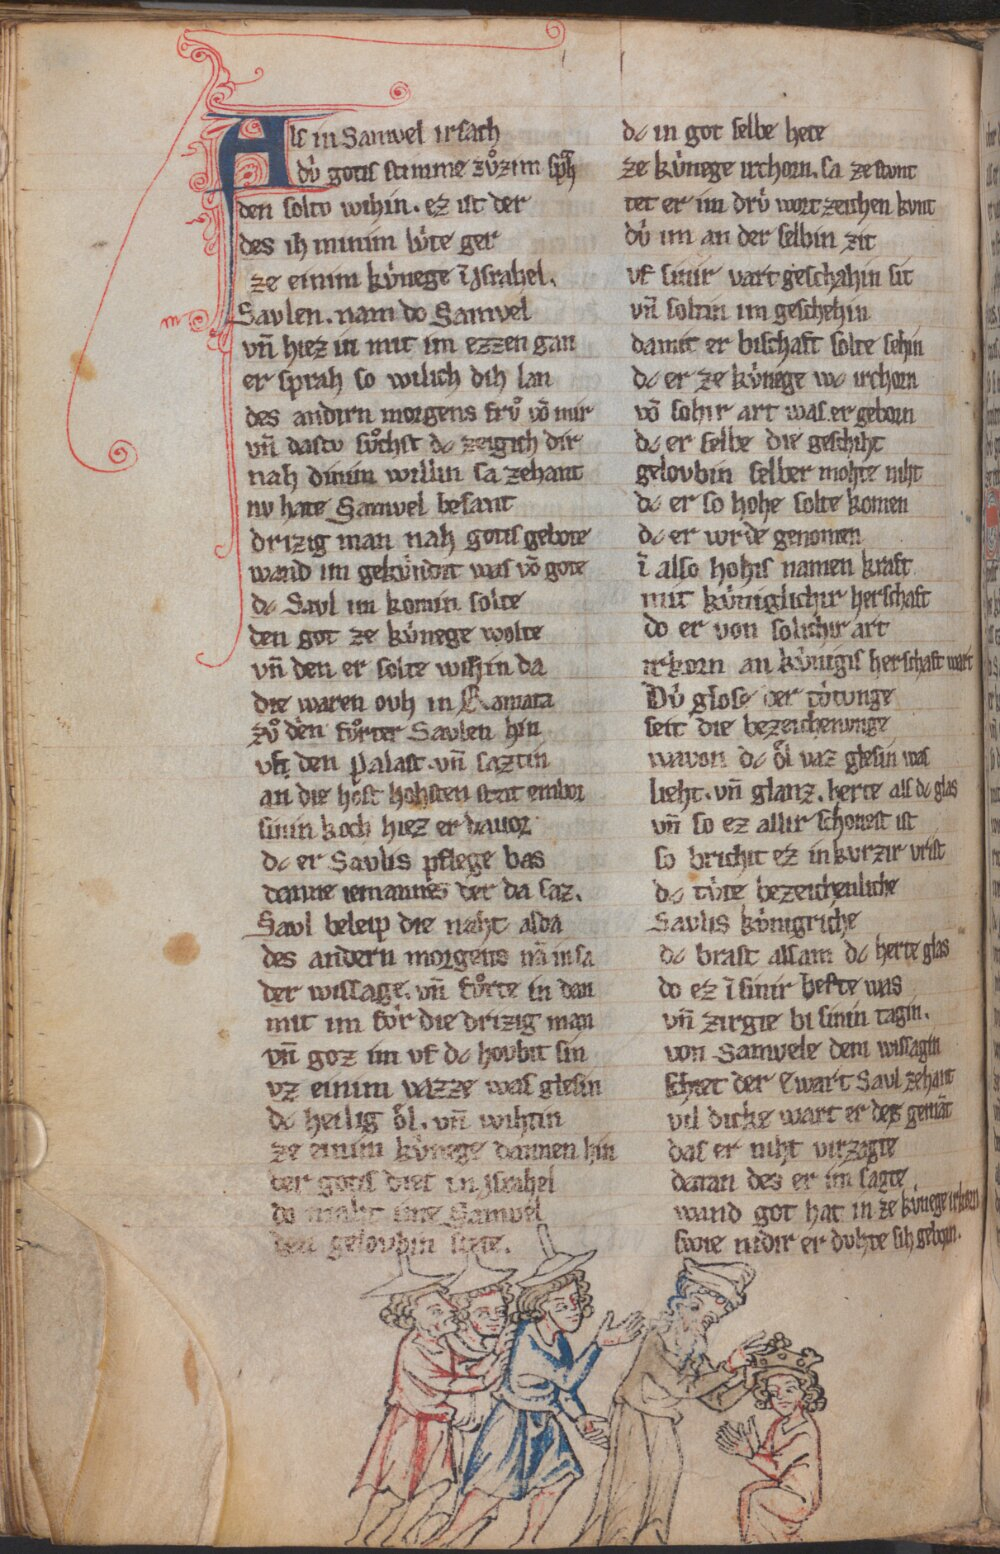 Als in Samvel irsach
dv̍ gotis stimme zvͦzim sprͣh
den soltv wihin. ez ist der
des ih minim lv̍te ger
ze einim kv̍nege ī Israhel.
Savlen. nam do Samvel
vn̄ hiez in mit im ezzen gan
er sprah so wilich dih lan
des andirn morgens frvͦ vō mir
vn̄ dastv svͦchst dc zeigich dir
nah dinim willin sa zehant
nv hate Samvel besant
drizig man nah gotis gebote
wand im gekv̍ndit was vō gote
dc Savl im komin solte
den got ze kv̍nege wolte
vn̄ den er solte wihin da
die waren ovh in Ramata
zvͦ den fvͦrter Savlen hin
vf den palast. vn̄ saztin
an die hohsten stat embor
sinin koch hiez er davor
dc er Savlis pflege bas
danne iemannes der da saz.
Savl beleip die naht alda
des andern morgens nā in sa
der wissage. vn̄ fvͦrte in dan
mit im fv̍r die drizig man
vn̄ goz im vf dc hovbit sin
vz einim vazze was glesin
dc heilig ŏl. vn̄ wihtin
ze einim kv̍nege dannen hin
der gotis diet in Israhel
do
den gelovbin
dc in got selbe hete
ze kv̍nege irchorn. sa ze stvnt
tet er im drv̍ wortzeichen kvnt
dv̍ im an der selbin zit
vf sinir vart geschahin sit
vn̄ soltin im geschehin
damit er bischaft solte sehin
dc er ze kv̍nege wc irchorn
vō sohir art was er geborn
dc er selbe die geschiht
gelovbin selber mohte niht
dc er so hohe solte komen
dc er wrde genomen
ī also hohis namen kraft
mit kv̍niglichir herschaft
do er von solichir art
irkorn an kv̍nigis herschaft wart
Dv̍ glose der tv̍tvnge
seit die bezeichenvnge
wavon dc ŏl vaz glesin was
lieht. vn̄ glanz. herte als dc glas
vn̄ so ez allir schonest ist
so brichit ez in kvrzir vrist
dc tv̍te bezeichenliche
Savlis kv̍nigriche
dc brast alsam dc herte glas
do ez ī sinir hefte was
vn̄ zirgie bi sinin tagin.
von Samvele dem wissagin
schiet der Ewart Savl zehant
vil dicke wart er des gemāt
das er niht virzagte
daran des er im sagte.
wand got hat in ze kv̍nege irkorn
swie nidir er dvhte sih geborn.